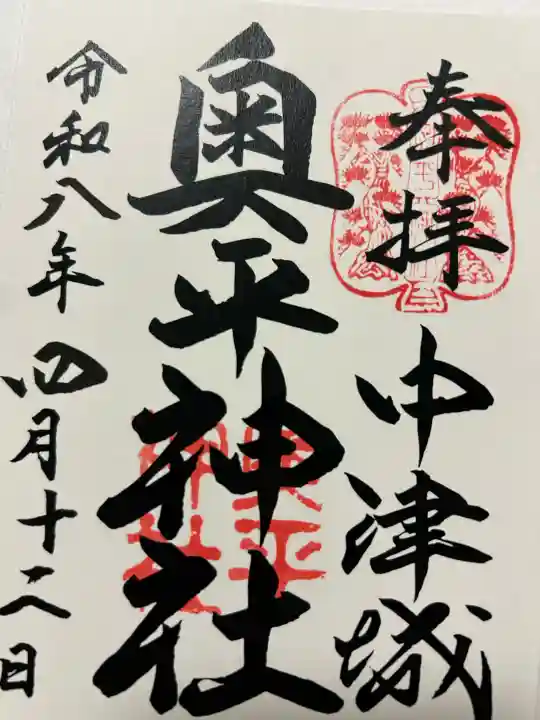 奉拝
中津城
奥平神社
奥平
神社
令和八年四月十二日